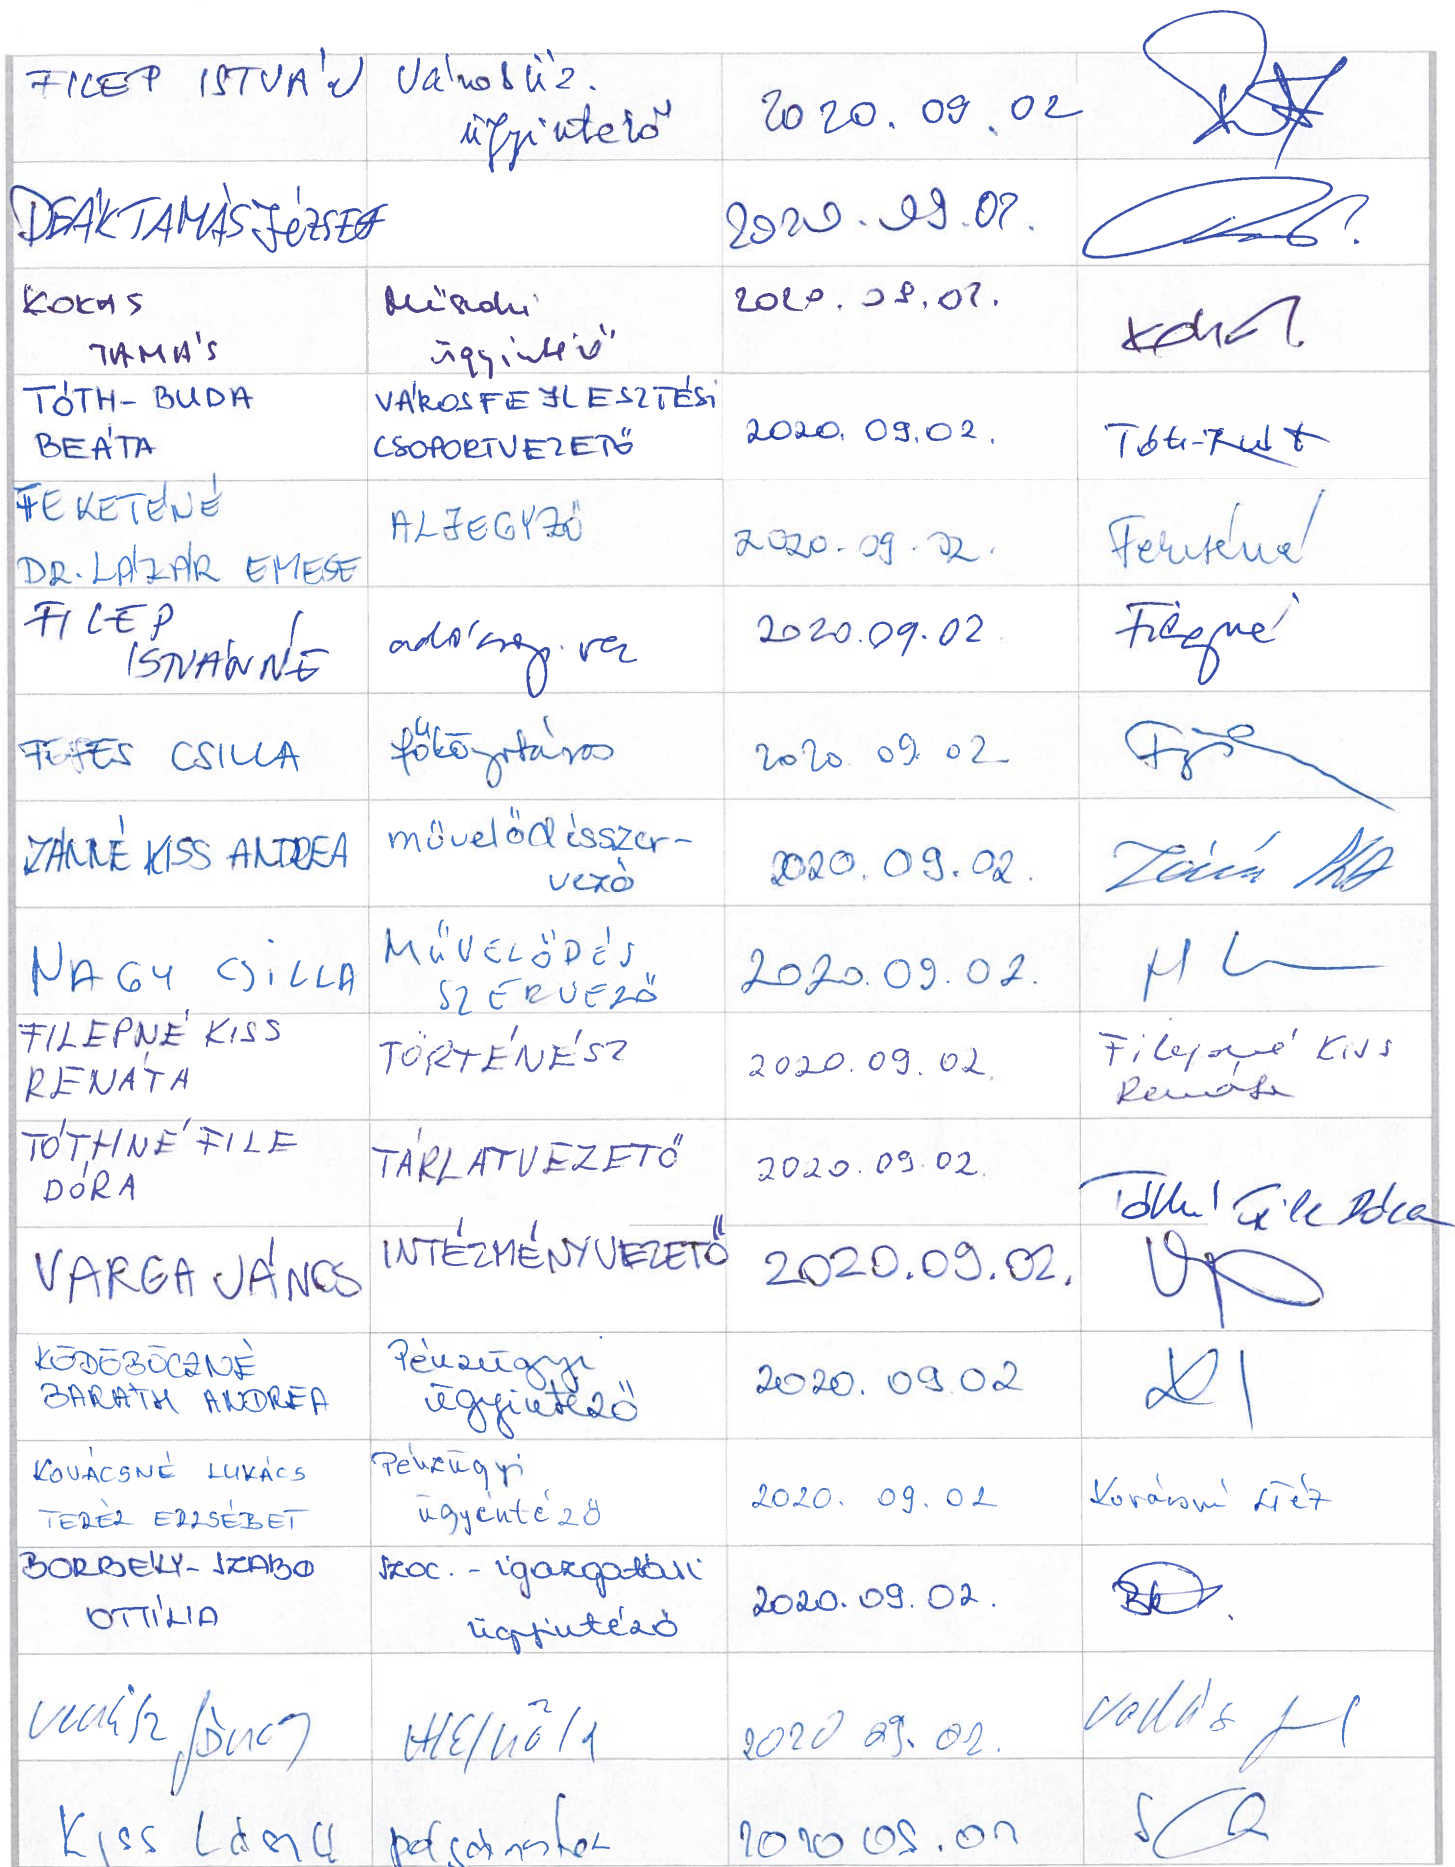 FILEP ISTVÁN
Városüz.
ügyintéző
2020. 09. 02
DEÁK TAMÁS JÓZSEF
2020. 09. 02.
KOKAS
TAMÁS
Műszaki
ügyintéző
2020. 09. 02.
TÓTH-BUDA
BEÁTA
VÁROSFEJLESZTÉSI
CSOPORTVEZETŐ
2020. 09. 02.
FEKETÉNÉ
DR. LÁZÁR EMESE
ALJEGYZŐ
2020. 09. 02.
Feketéné
FILEP
ISTVÁNNÉ
adócsop. vez
2020. 09. 02.
Filepné
FEJES CSILLA
főkönyvtáros
2020. 09. 02
ZÁNNÉ KISS ANDREA
művelődésszer-
vező
2020. 09. 02.
NAGY CSILLA
MŰVELŐDÉS
SZERVEZŐ
2020. 09. 02.
FILEPNÉ KISS
RENÁTA
TÖRTÉNÉSZ
2020. 09. 02.
Filepné Kiss
Renáta
TÓTHNÉ FILE
DÓRA
TÁRLATVEZETŐ
2020. 09. 02.
Tóthné File Dóra
VARGA JÁNOS
INTÉZMÉNYVEZETŐ
2020. 09. 02.
KÖDÖBÖCZNÉ
BARÁTH ANDREA
Pénzügyi
ügyintéző
2020. 09. 02
KOVÁCSNÉ LUKÁCS
TERÉZ ERZSÉBET
Pénzügyi
ügyintéző
2020. 09. 02
Kovácsné LTéz
BORBÉLY-SZABÓ
OTTÍLIA
szoc. - igazgatási
ügyintéző
2020. 09. 02.
János
alelnök
2020 09. 02.
Kiss László
polgármester
2020 09. 02